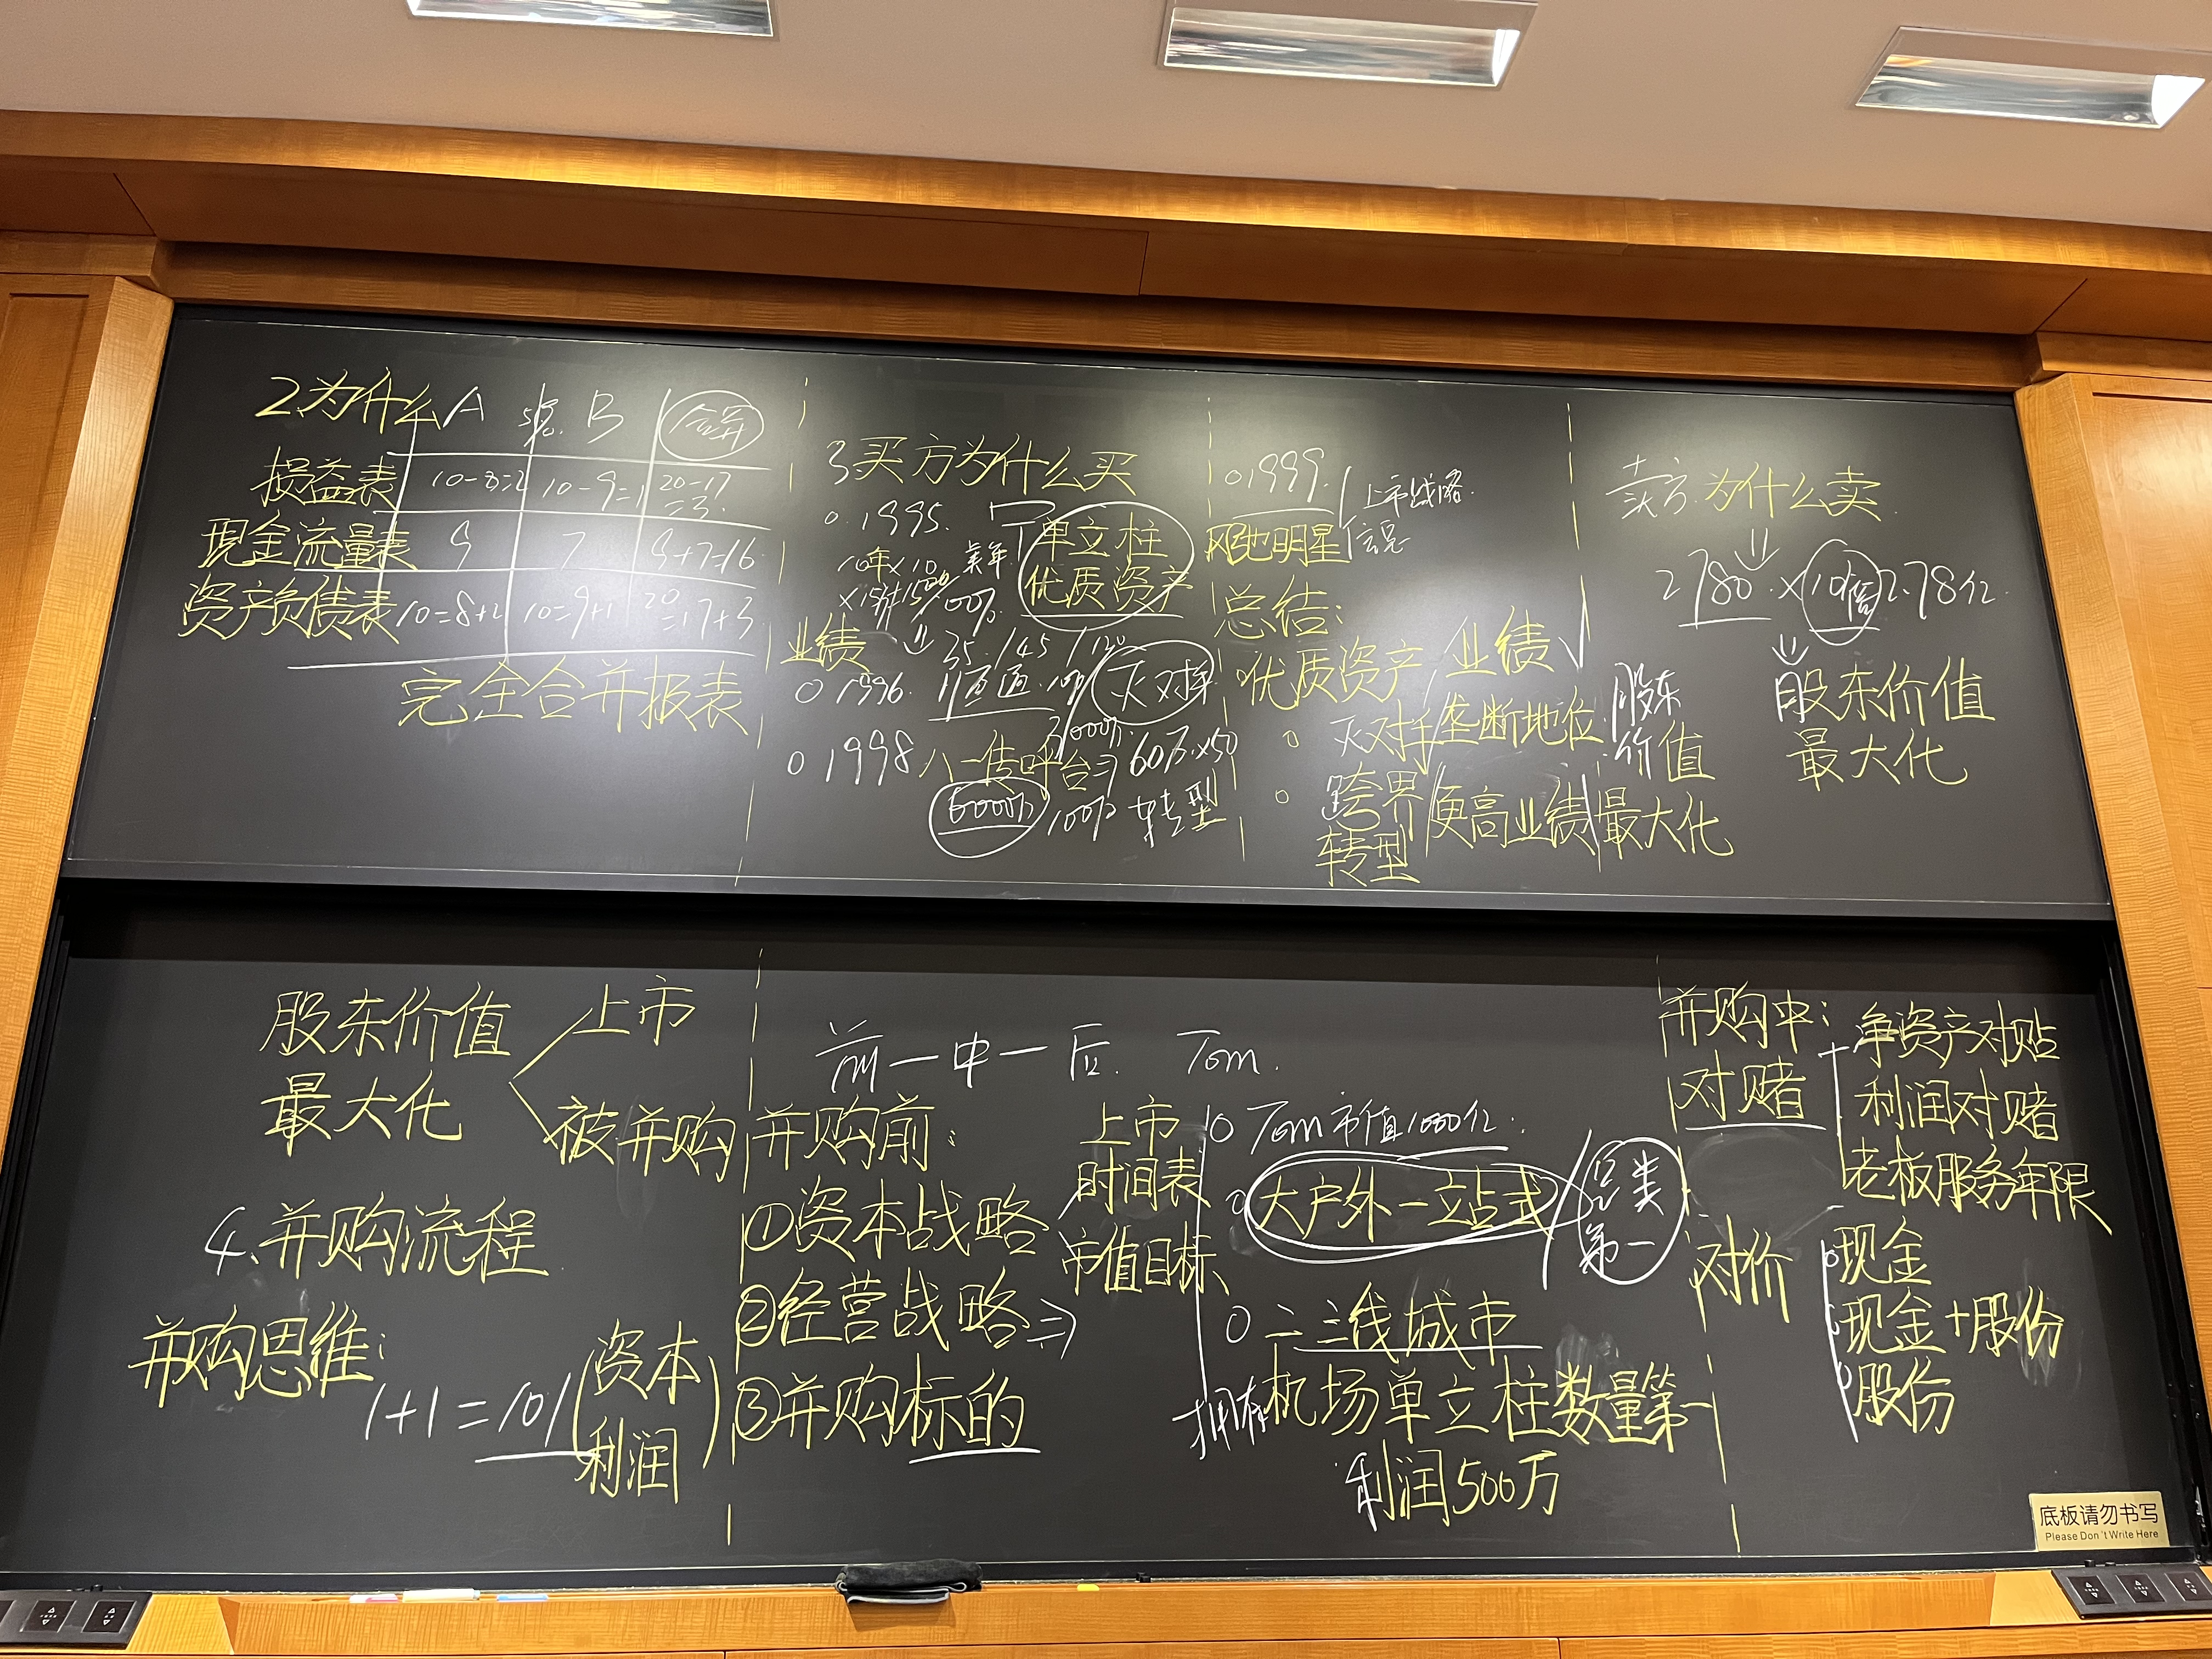 2.为什么 A 51% B 合并
损益表 10-8=2 10-9=1 20-17=3
现金流量表 9 7 9+7=16
资产负债表 10=8+2 10=9+1 20=17+3
完全合并报表
3 买方为什么买
○ 1995.
单立柱
优质资产
10年×10
100%
业绩
35 / 45 / 120
○ 1996. 灭对手
○ 1998 八一传呼台 ⇒ 60万×50
3000万
6000万 100% 转型
○ 1999. 上市战略
风驰明星
总结:
○优质资产 业绩
○ 灭对手 垄断地位
○ 跨界转型 更高业绩
股东价值最大化
卖方为什么卖
2780 × 10倍 2.78亿
股东价值
最大化
股东价值
最大化
上市
被并购
4.并购流程
并购思维:
1+1=101(资本
利润)
前一中一后. Tom.
并购前:
①资本战略
②经营战略 ⇒
③并购标的
上市
时间表
市值目标
○ Tom市值1000亿.
○ 大户外一站式
品类
第一
○ 二三线城市
拥有机场单立柱数量第一
利润500万
并购中:
对赌
净资产对赌
利润对赌
老板服务年限
对价
○现金
○现金+股份
○股份
底板请勿书写
Please Don't Write Here